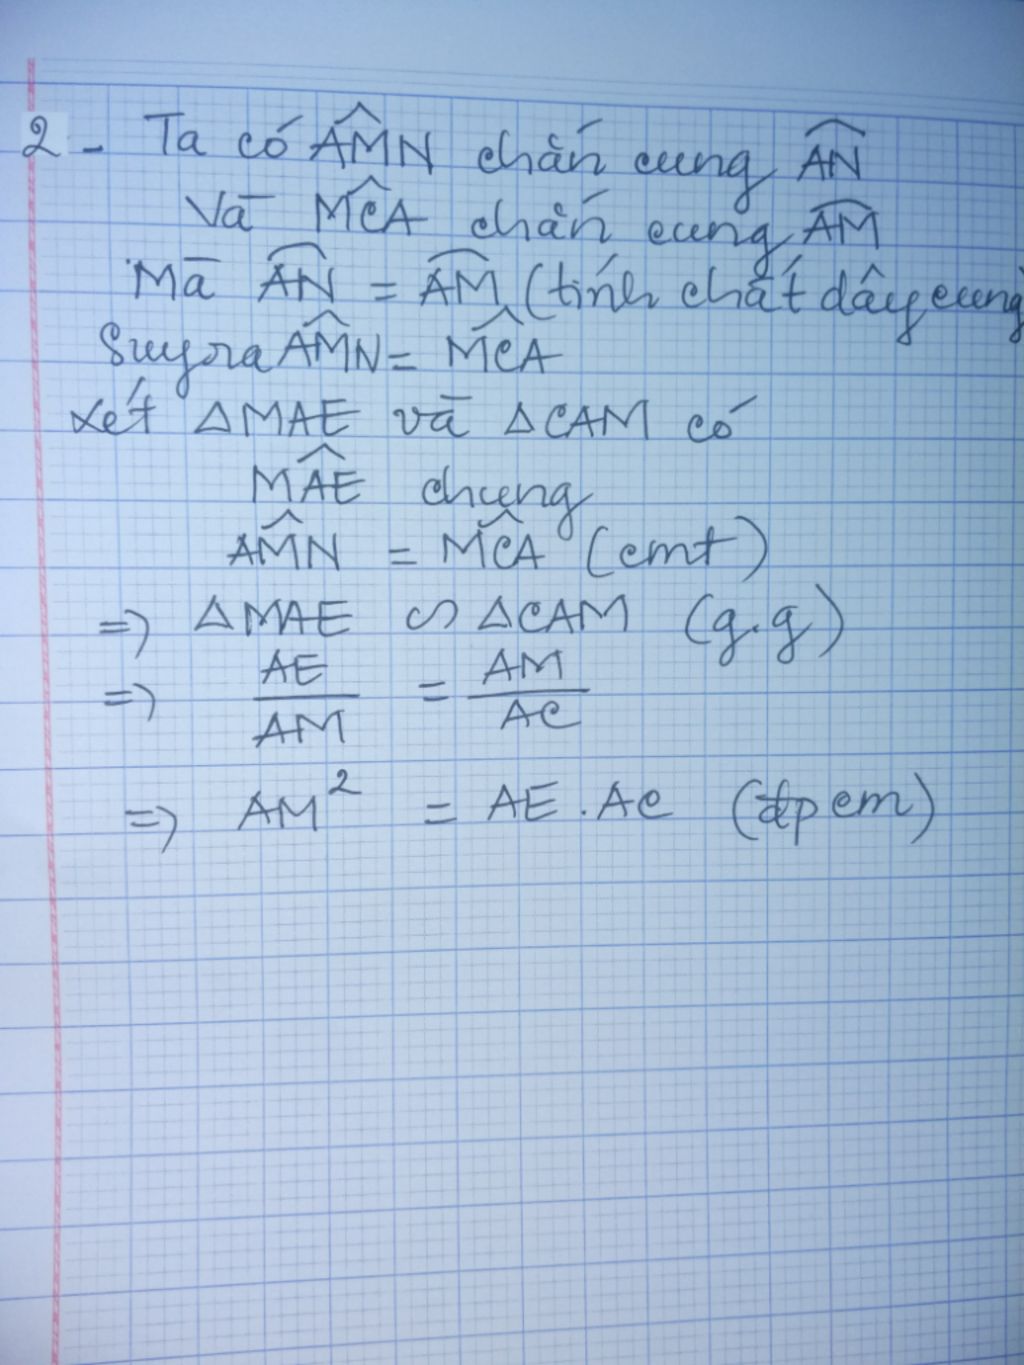 2 - Ta có AM̂N chắn cung A͡N
Và MĈA chắn cung A͡M
Mà A͡N = A͡M (tính chất dây cung
Suy ra AM̂N = MĈA
xét ΔMAE và ΔCAM có
MÂE chung
AM̂N = MĈA (cmt)
=> ΔMAE ∽ ΔCAM (g.g)
=> AE/AM = AM/AC
=> AM² = AE . AC (đpcm)